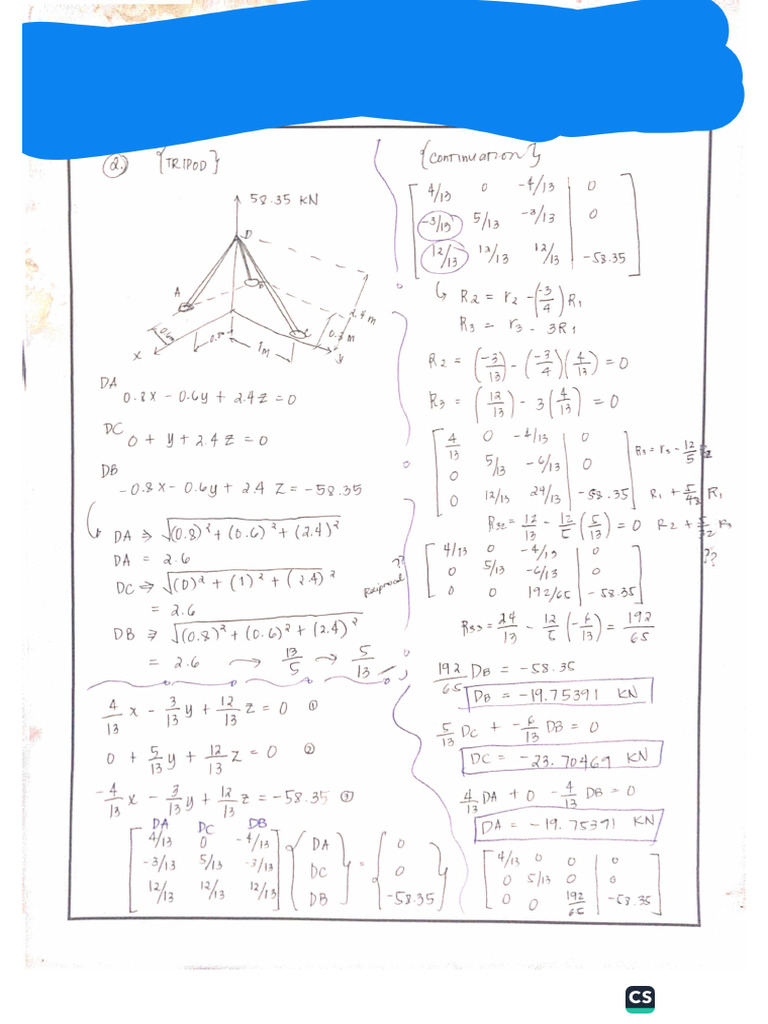 2. {TRIPOD}
58.35 KN
D
A
B
C
0.6
0.8
1m
2.4 m
0.3 m
x
y
DA
0.8x - 0.6y + 2.4z = 0
DC
0 + y + 2.4z = 0
DB
-0.8x - 0.6y + 2.4z = -58.35
DA ⇒ √(0.8)² + (0.6)² + (2.4)²
DA = 2.6
DC ⇒ √(0)² + (1)² + (2.4)²
= 2.6
DB ⇒ √(0.8)² + (0.6)² + (2.4)²
= 2.6 → 13/5 → 5/13
??
Reciprocal
4/13 x - 3/13 y + 12/13 z = 0 ①
0 + 5/13 y + 12/13 z = 0 ②
-4/13 x - 3/13 y + 12/13 z = -58.35 ③
DA DC DB
4/13 0 -4/13 DA 0
-3/13 5/13 -3/13 DC = 0
12/13 12/13 12/13 DB -58.35
{continuation}
4/13 0 -4/13 | 0
-3/13 5/13 -3/13 | 0
12/13 12/13 12/13 | -58.35
R2 = r2 - (-3/4) R1
R3 = r3 - 3R1
R2 = (-3/13) - (-3/4)(4/13) = 0
R3 = (12/13) - 3(4/13) = 0
4/13 0 -4/13 | 0
0 5/13 -6/13 | 0
0 12/13 24/13 | -58.35
R3 = r3 - 12/5 R2
R1 + 5/48 R1
R32 = 12/13 - 12/5 (5/13) = 0 R2 + 5/32 R3
??
4/13 0 -4/13 | 0
0 5/13 -6/13 | 0
0 0 192/65 | -58.35
R33 = 24/13 - 12/5 (-6/13) = 192/65
192/65 DB = -58.35
DB = -19.75391 KN
5/13 DC + -6/13 DB = 0
DC = -23.70469 KN
4/13 DA + 0 - 4/13 DB = 0
DA = -19.75391 KN
4/13 0 0 | 0
0 5/13 0 | 0
0 0 192/65 | -58.35
CS